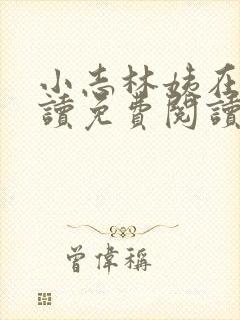 小志林姨在
讀免費閱讀
曾偉稱